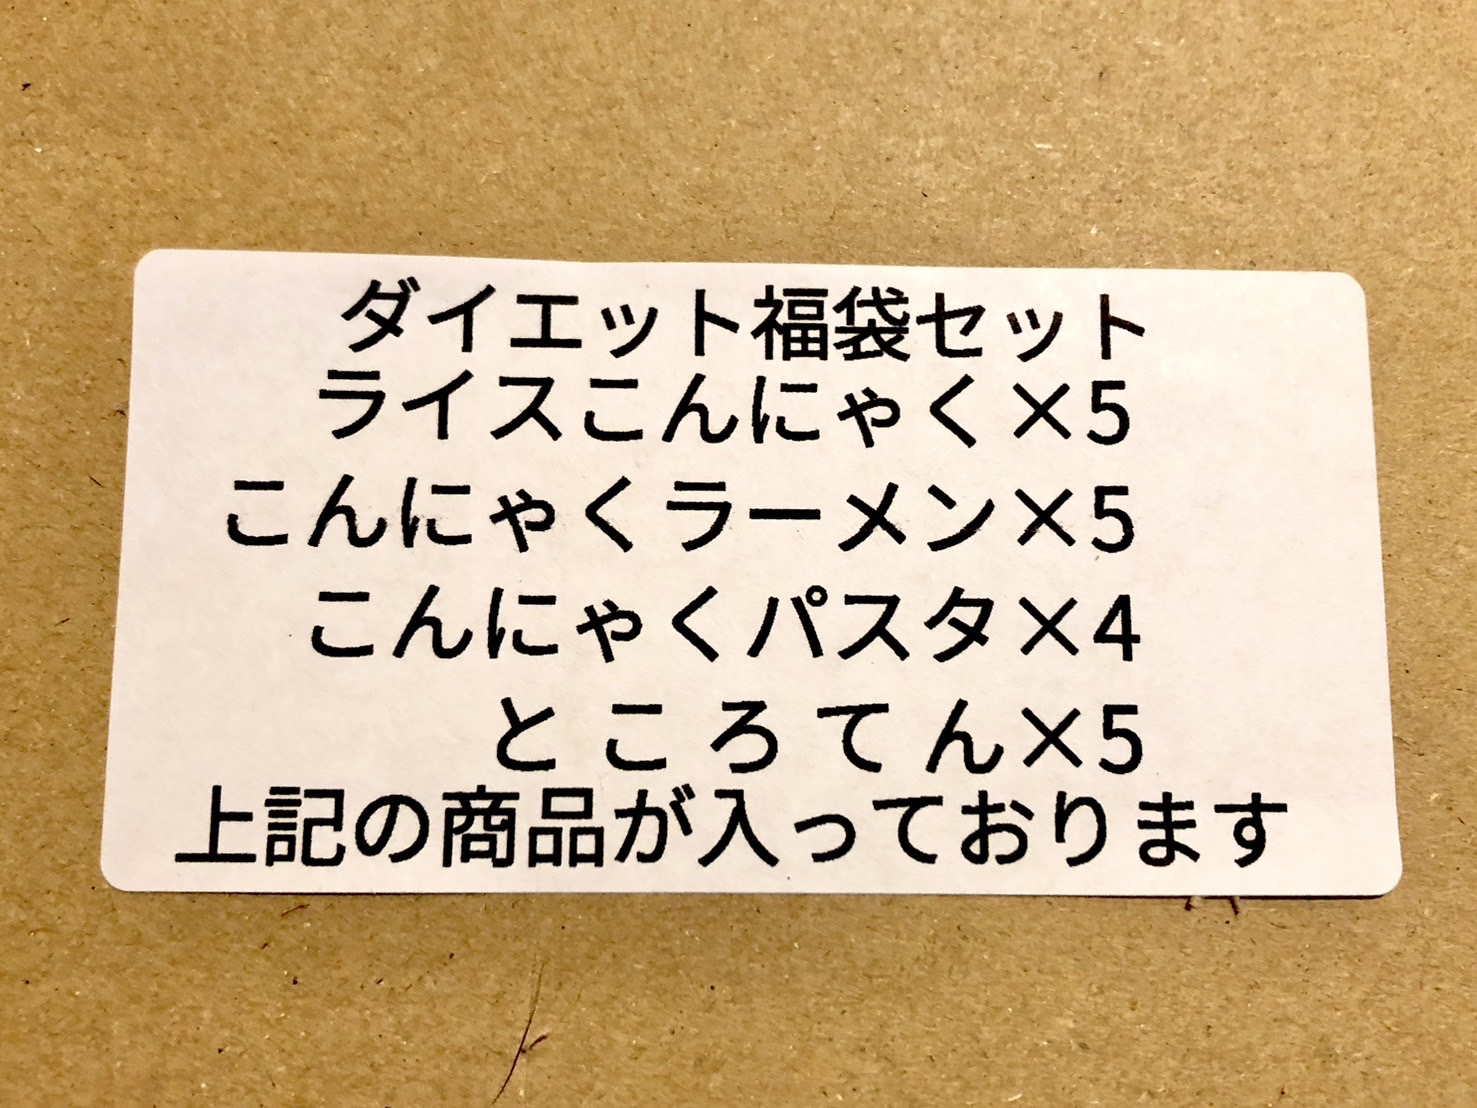 ダイエット福袋セット
ライスこんにゃく×5
こんにゃくラーメン×5
こんにゃくパスタ×4
ところてん×5
上記の商品が入っております